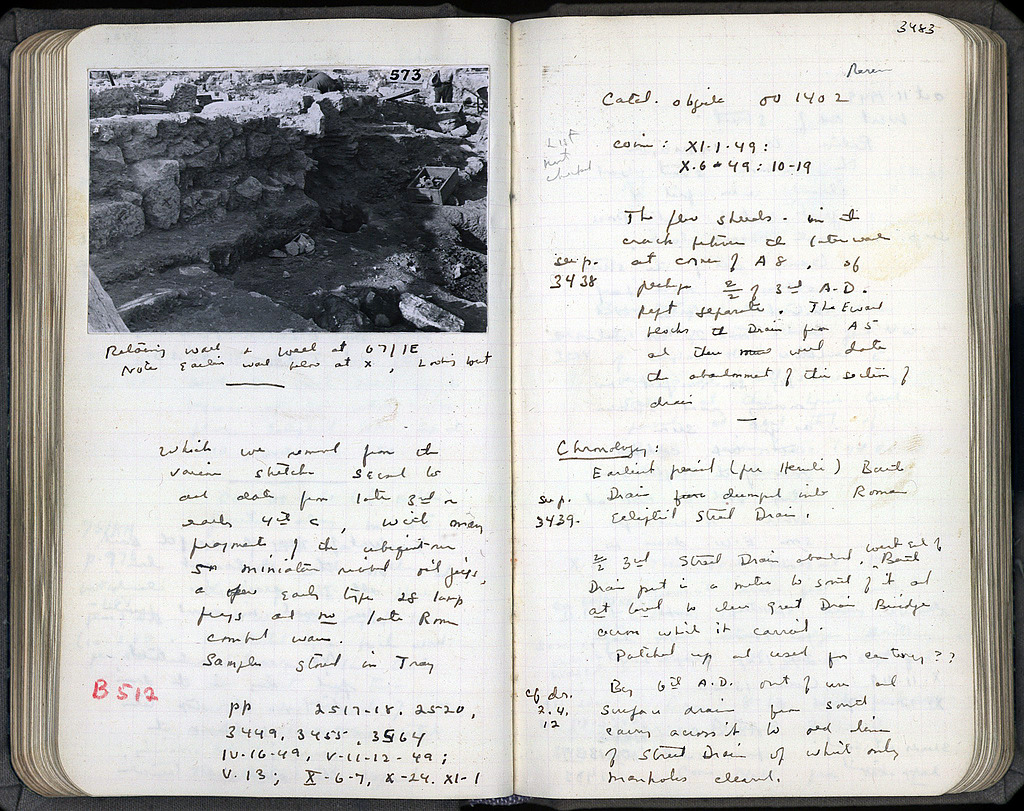 573
Retaining wall & well at 67/IE
Note Earlier wall below at X, Looking West
which we removed from the
various stretches seemed to
date from late 3rd or
early 4th c, with many
fragments of the ubiquitous
miniature oil jugs,
a few early type 28 lamp
frags and no late Roman
combed ware.
Samples stored in Tray
B 512
pp 2517-18, 2520,
3449, 3455, 3564
IV-16-49, V-11-12-49;
V-13; X-6-7, X-24, XI-1
3483
Catal. objects OO 1402
List not checked
coins: XI-1-49:
X-6-49: 10-19
The few sherds - in the
crack between the later walls
see p. 3438
at corner of A8, of
perhaps 2/2 of 3rd A.D.
kept separate. The E wall
blocks the Drain from A5
and thus will date
the abandonment of this section of
drain
Chronology:
Earliest period (pre Heruli) Bath
see p. 3439.
Drain dumped into Roman
Street Drain.
2/2 3rd Street Drain abandoned, West End of Bath
Drain put in a metre to south of it and
at level to clear Great Drain Bridge
across which it carried.
Patched up and used for century??
cf dr. 2.4.12
By 6th A.D. out of use and
surface drain from south
carry across it to old line
of Street Drain of which only
manholes cleared.